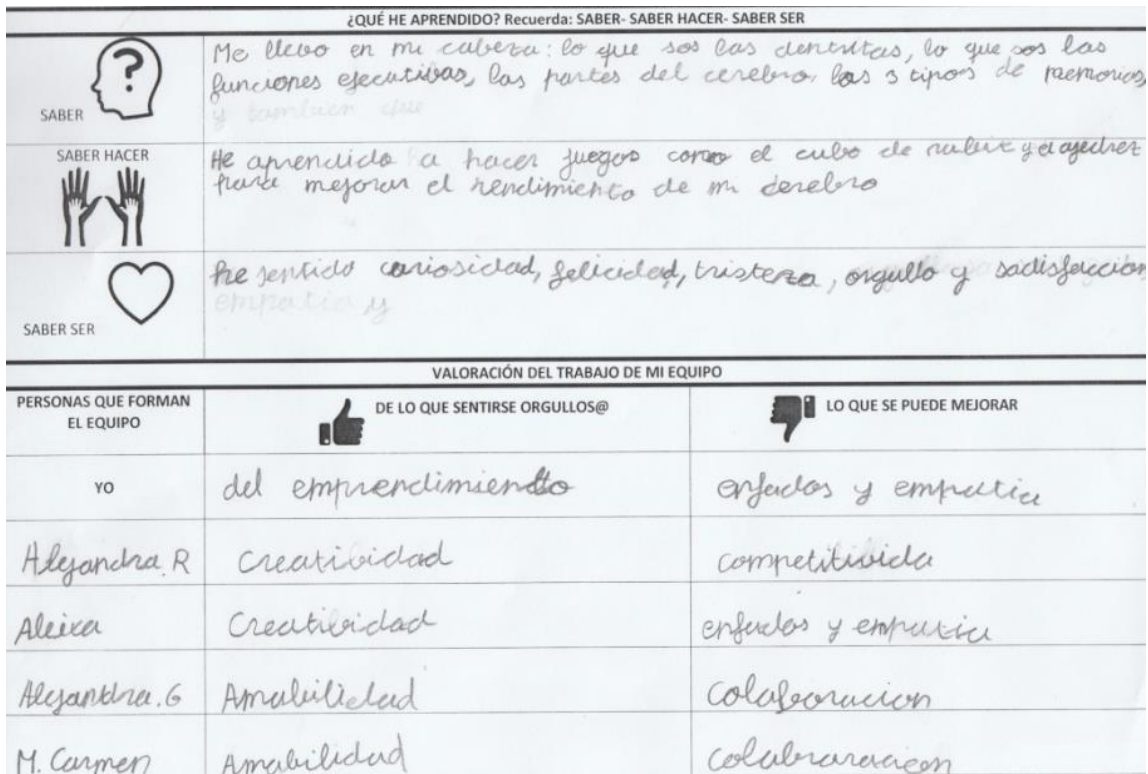 ¿QUÉ HE APRENDIDO? Recuerda: SABER- SABER HACER- SABER SER
SABER
Me llevo en mi cabeza: lo que sos las dentritas, lo que sos las
funciones ejecutivas, las partes del cerebro, las 3 tipos de memorias,
y tambien que
SABER HACER
He aprendido a hacer juegos como el cubo de rubix y el ajedrez
para mejorar el rendimiento de mi cerebro
SABER SER
he sentido curiosidad, felicidad, tristeza, orgullo y sadisfaccion
empatia y
VALORACIÓN DEL TRABAJO DE MI EQUIPO
PERSONAS QUE FORMAN
EL EQUIPO
DE LO QUE SENTIRSE ORGULLOS@
LO QUE SE PUEDE MEJORAR
YO
del emprendimiento
enfados y empatia
Alejandra. R
Creatividad
competitivida
Aleixa
Creatividad
enfados y empatia
Alejandra. G
Amabilidad
colaboracion
M. Carmen
Amabilidad